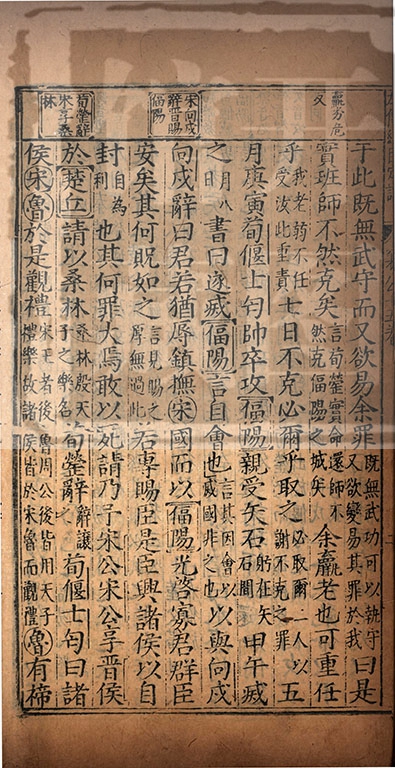 宋向戌辭晉賜偪陽
荀罃辭宋享桑林
于此既無武守而又欲易余罪既無武功可以執守又欲變易其罪於我曰是
實班師不然克矣言荀罃實命還師不然克偪陽之城矣余羸老也可重任
乎我老弱不任受汝此重責七日不克必爾乎取之必取爾二人以謝不克之罪五
月庚寅荀偃士匄帥卒攻偪陽親受矢石躬在矢石間甲午滅
之月八日書曰遂滅偪陽言自會也言其因會以滅國非之也以與向戌
向戌辭曰君若猶辱鎮撫宋國而以偪陽光啓寡君群臣
安矣其何貺如之言見賜之厚無過此若專賜臣是臣興諸侯以自
封自為利也其何罪大焉敢以死請乃予宋公宋公享晉侯
於楚丘請以桑林桑林殷天子之樂名荀罃辭辭讓荀偃士匄曰諸
侯宋魯於是觀禮宋王者後魯周公後皆用天子禮樂故諸侯皆於宋魯而觀禮魯有禘